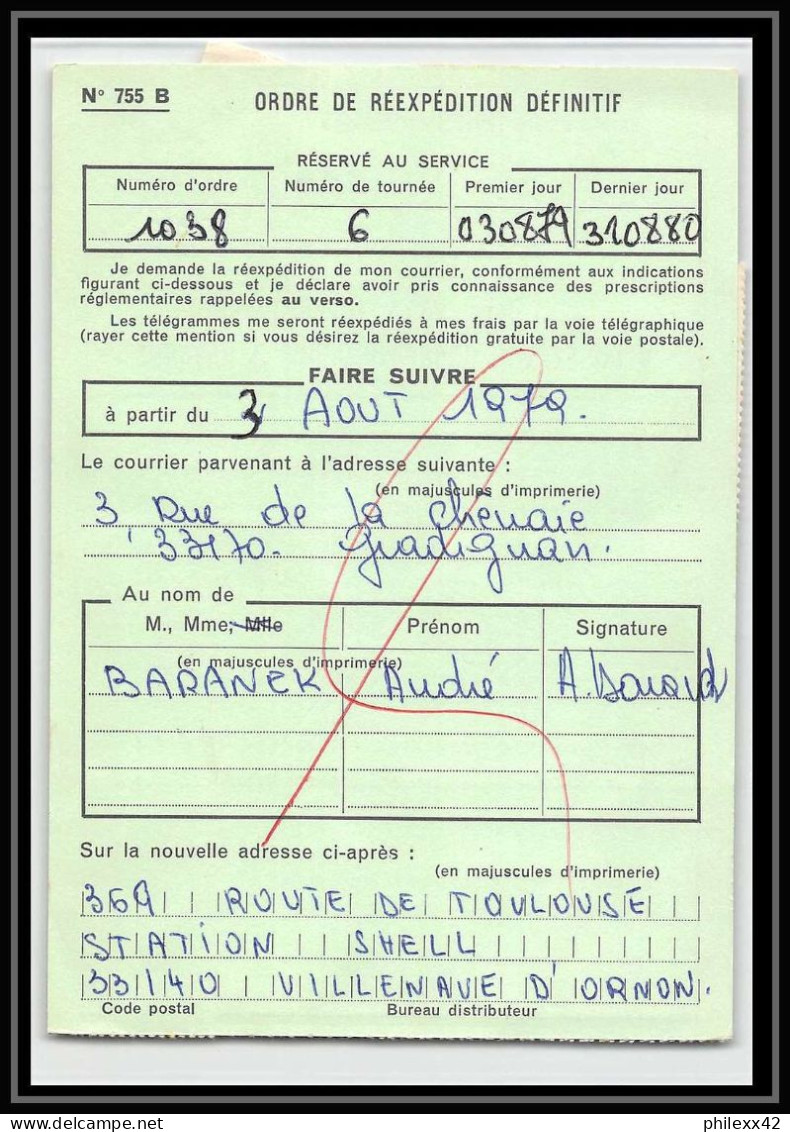 N° 755 B
ORDRE DE RÉEXPÉDITION DÉFINITIF
RÉSERVÉ AU SERVICE
Numéro d'ordre Numéro de tournée Premier jour Dernier jour
1038 6 030879 310880
Je demande la réexpédition de mon courrier, conformément aux indications
figurant ci-dessous et je déclare avoir pris connaissance des prescriptions
réglementaires rappelées au verso.
Les télégrammes me seront réexpédiés à mes frais par la voie télégraphique
(rayer cette mention si vous désirez la réexpédition gratuite par la voie postale).
FAIRE SUIVRE
à partir du 3 AOUT 1979.
Le courrier parvenant à l'adresse suivante :
(en majuscules d'imprimerie)
3 Rue de la chênaie
33170. Gradignan.
Au nom de
M., Mme, Mlle Prénom Signature
(en majuscules d'imprimerie)
BARANEK André
Sur la nouvelle adresse ci-après :
(en majuscules d'imprimerie)
369 ROUTE DE TOULOUSE
STATION SHELL
33140 VILLENAVE D'ORNON.
Code postal Bureau distributeur
philexx42